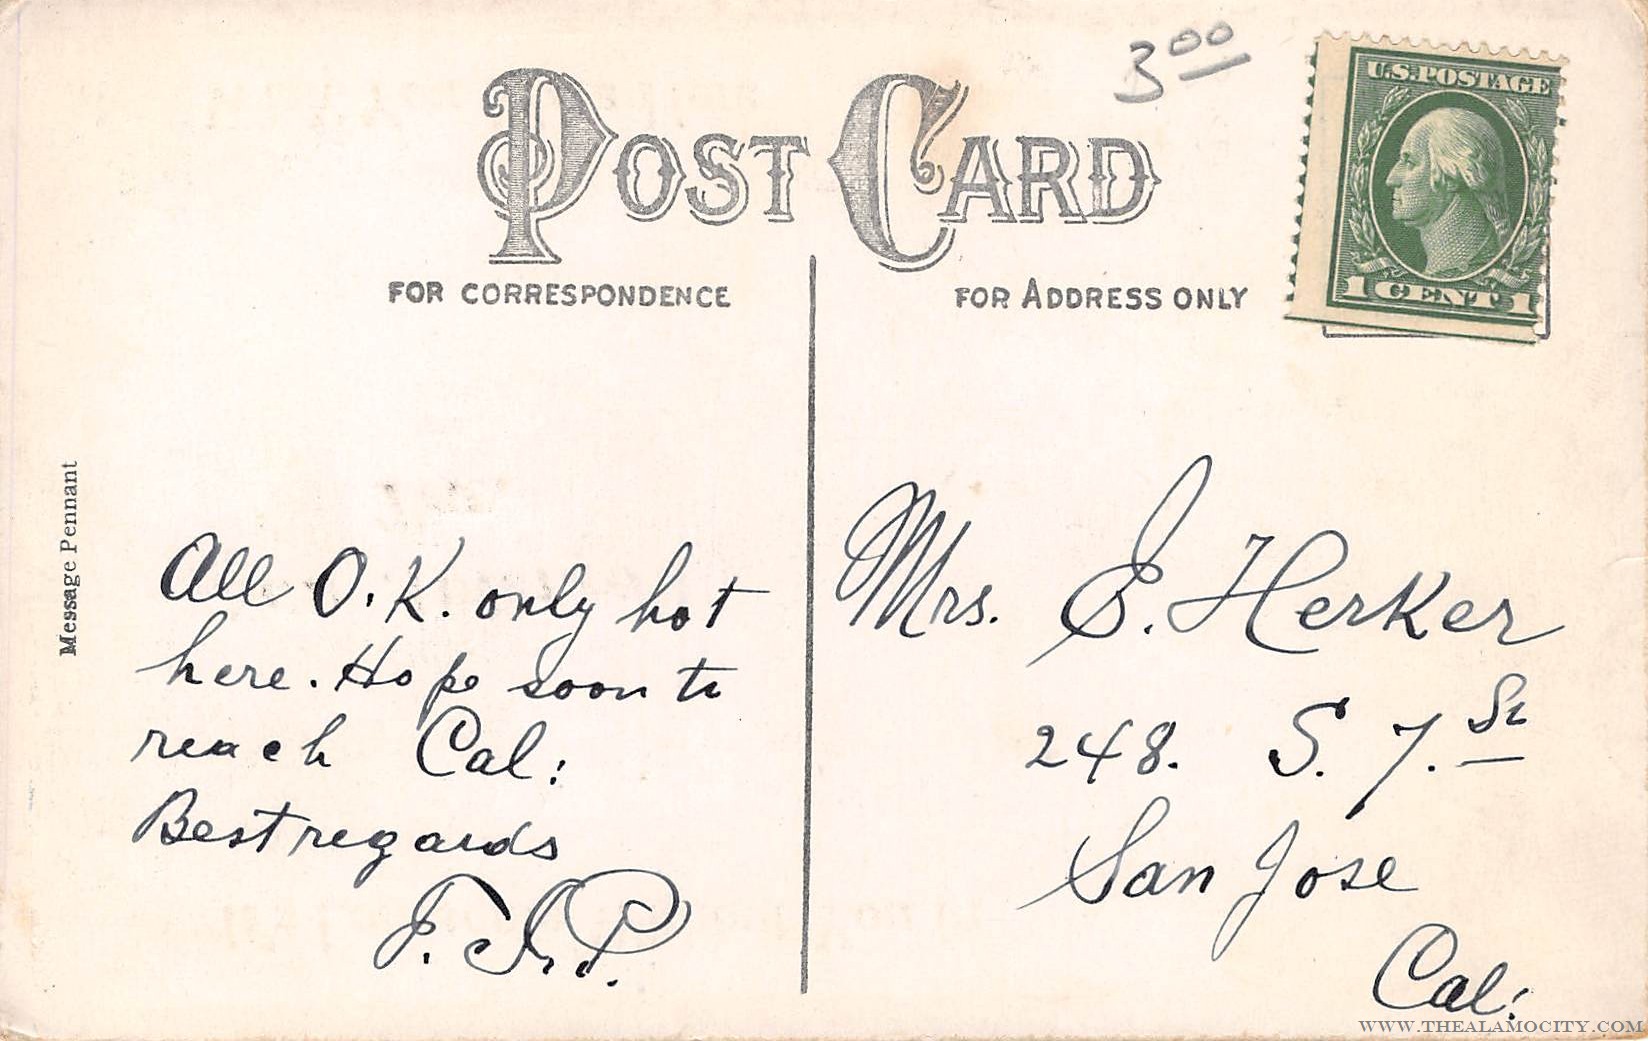 3 00
U.S. POSTAGE
1 CENT 1
POST CARD
FOR CORRESPONDENCE
FOR ADDRESS ONLY
Message Pennant
All O.K. only hot
here. Hope soon to
reach Cal:
Best regards
Mrs. S. Herker
248. S. 7. St
San Jose
Cal:
WWW.THEALAMOCITY.COM